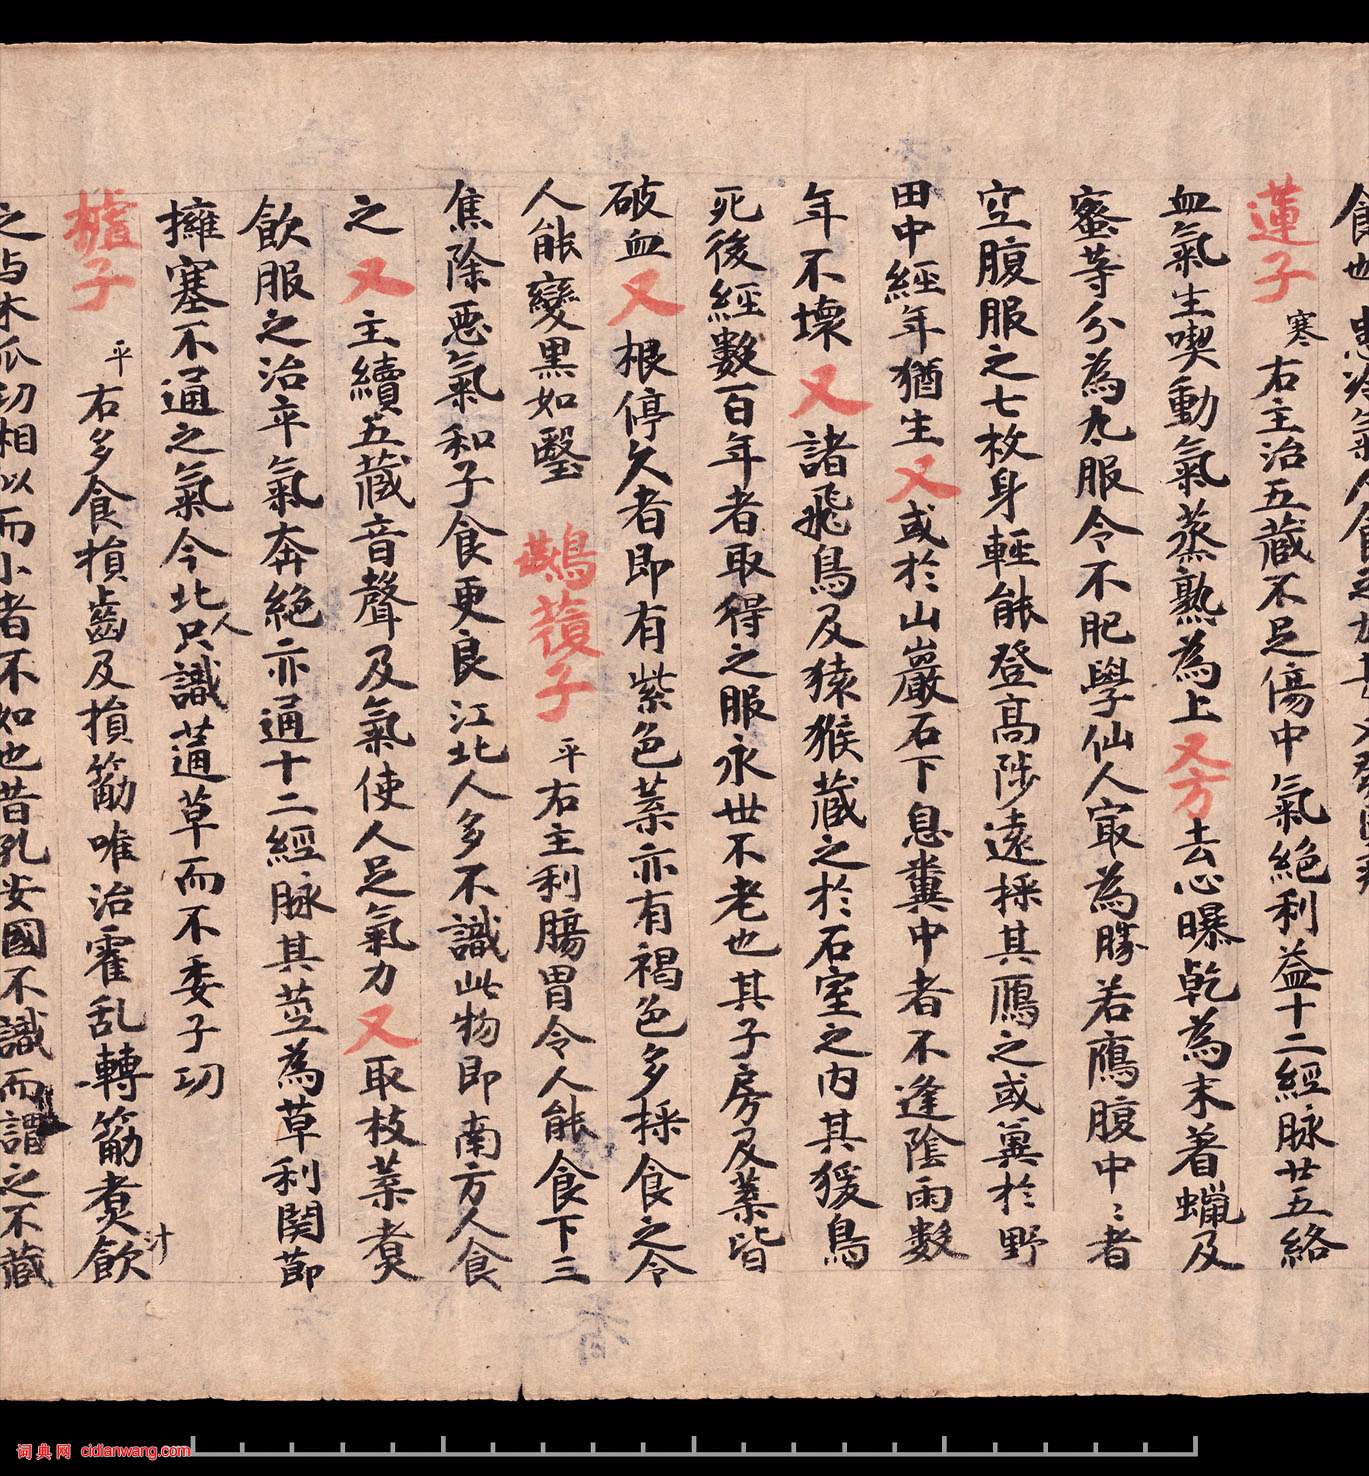 蓮子寒右主治五藏不足傷中氣絕利益十二經脉廿五絡
血氣生喫動氣蒸熟為上又方去心曝乾為末着蠟及
蜜等分為丸服令不肥學仙人冣為勝若鴈腹中〻者
空腹服之七枚身輕能登高陟遠採其鴈之或糞於野
田中經年猶生又或於山巖石下息糞中者不逢陰雨數
年不壞又諸飛鳥及猿猴藏之於石室之內其猨鳥
死後經數百年者取得之服永世不老也其子房及葉皆
破血又根停久者即有紫色葉亦有褐色多採食之令
人能變黑如瑿 鷰蕧子平右主利腸胃令人能食下三
焦除惡氣和子食更良江北人多不識此物即南方人食
之又主續五藏音聲及氣使人足氣力又取枝葉煮
飲服之治卒氣奔絕亦通十二經脉其莖為草利関莭
擁塞不通之氣今北人只識蓪草而不委子功
樝子平右多食損齒及損筋唯治霍乱轉筋煮汁飲
之与木瓜功相似而小者不如也昔孔安國不識而謂之不藏
词典网 cidianwang.com